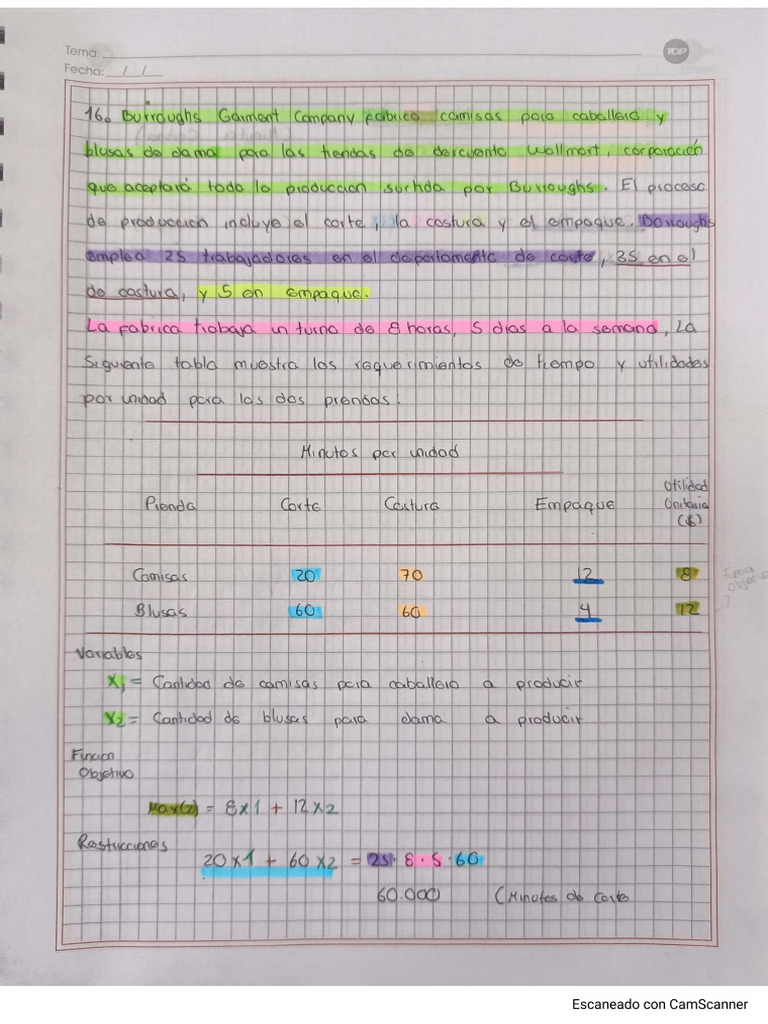 Tema:
TOP
Fecha: / /
16. Burroughs Garment Company fabrica camisas para caballero y
blusas de dama para las tiendas de descuento Wallmort, corporación
que aceptará toda la produccion surtida por Burroughs. El proceso
de produccion incluye el corte, la costura y el empaque. Borroughs
emplea 25 trabajadores en el departamento de corte, 35 en el
de costura, y 5 en empaque.
La fabrica trabaja un turno de 8 horas, 5 dias a la semana, La
Siguiente tabla muestra los requerimientos de tiempo y utilidades
por unidad para las dos prendas:
Minutos por unidad
Prenda Corte Costura Empaque Utilidad Unitaria ($)
Camisas 20 70 12 8
Blusas 60 60 4 12
Variables
X1 = Cantidad de camisas para caballero a producir
X2 = Cantidad de blusas para dama a producir
Funcion
Objetivo
Max(z) = 8x1 + 12x2
Restricciones
20x1 + 60x2 = 25 · 8 · 5 · 60
60.000 (Minutos de corte
Escaneado con CamScanner